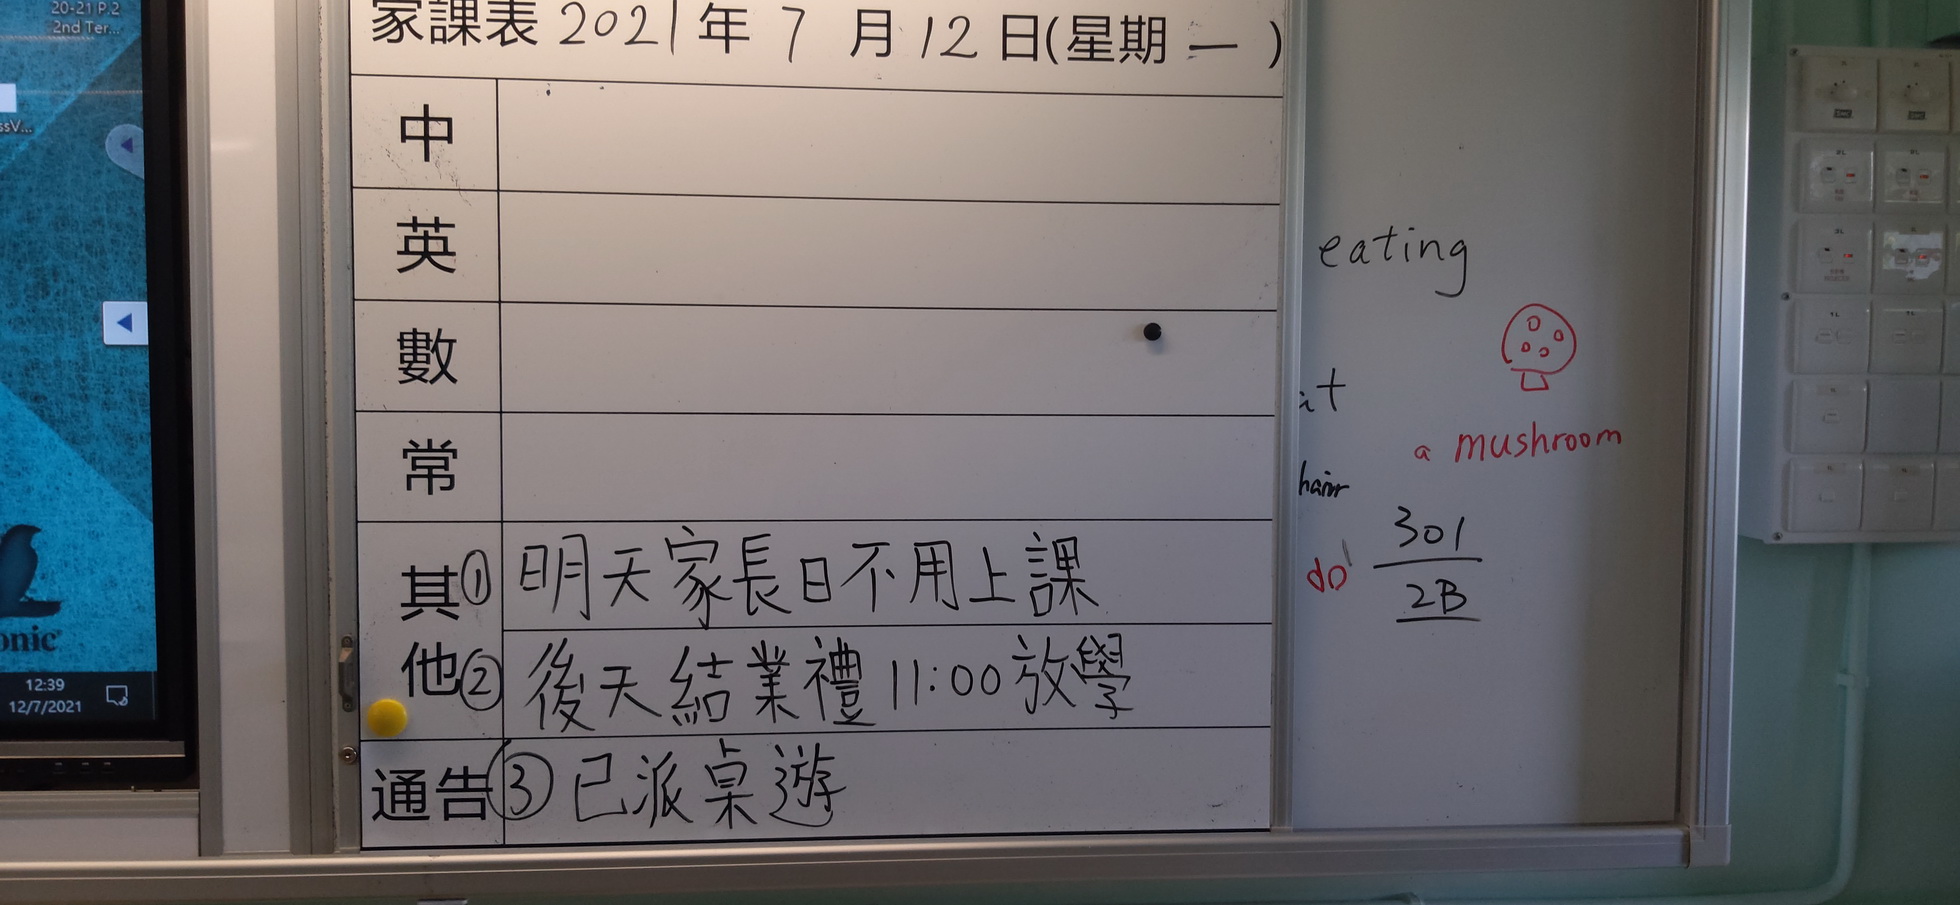 20-21 P.2
2nd Ter...
ssV...
onic
12:39
12/7/2021
家課表 2021年 7 月 12 日(星期 一 )
中
英
數
常
其他
① 明天家長日不用上課
② 後天結業禮 11:00 放學
通告
③ 已派桌遊
eating
it
hair
a mushroom
do
301
2B